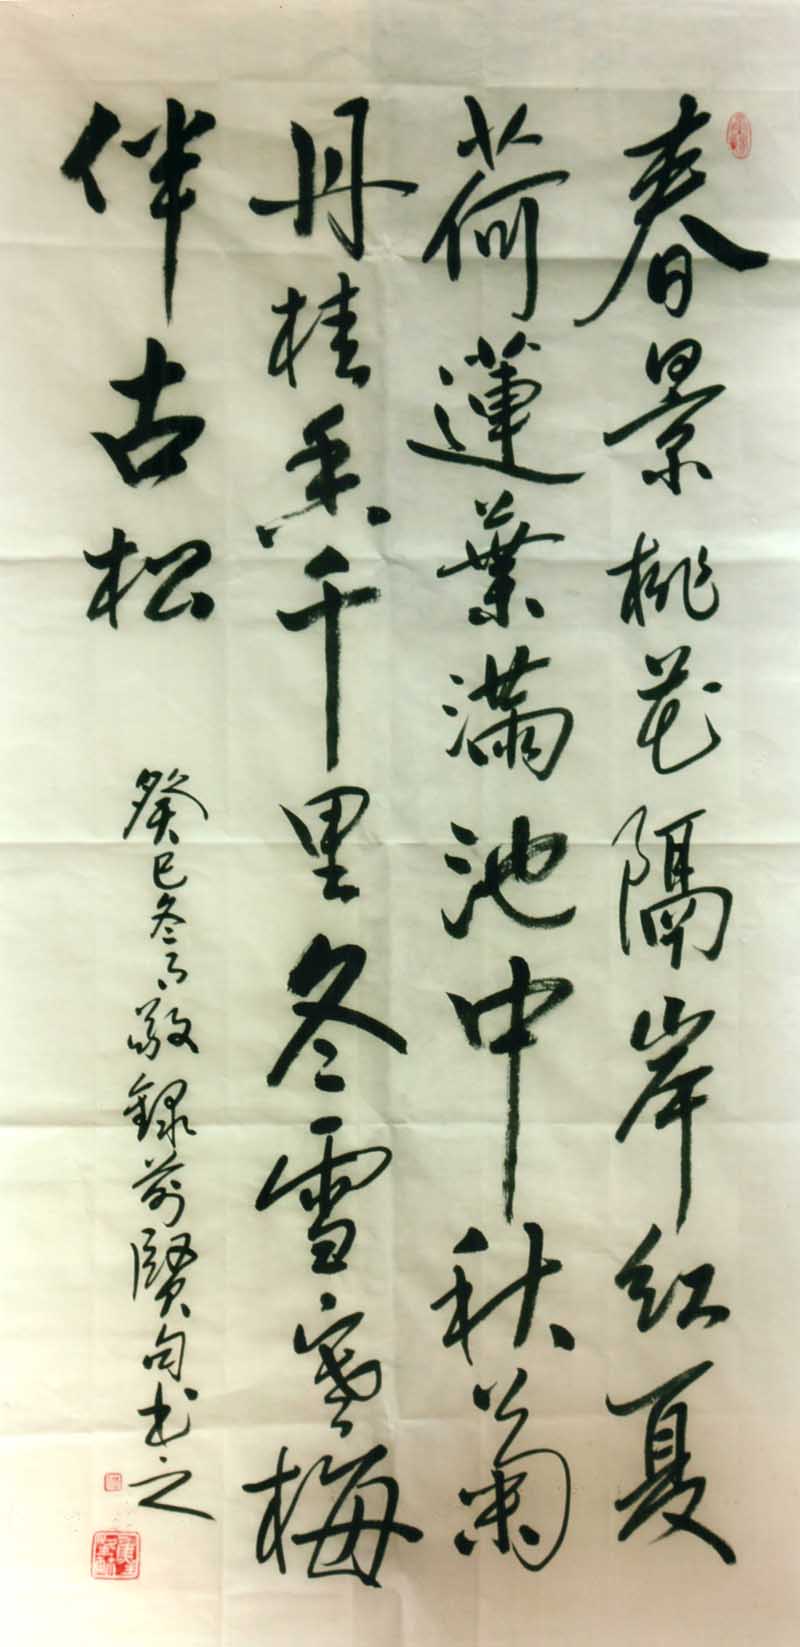 春景桃花隔岸紅夏
荷蓮葉滿池中秋菊
丹桂香千里冬雪寒梅
伴古松
癸巳冬月敬録前賢句书之